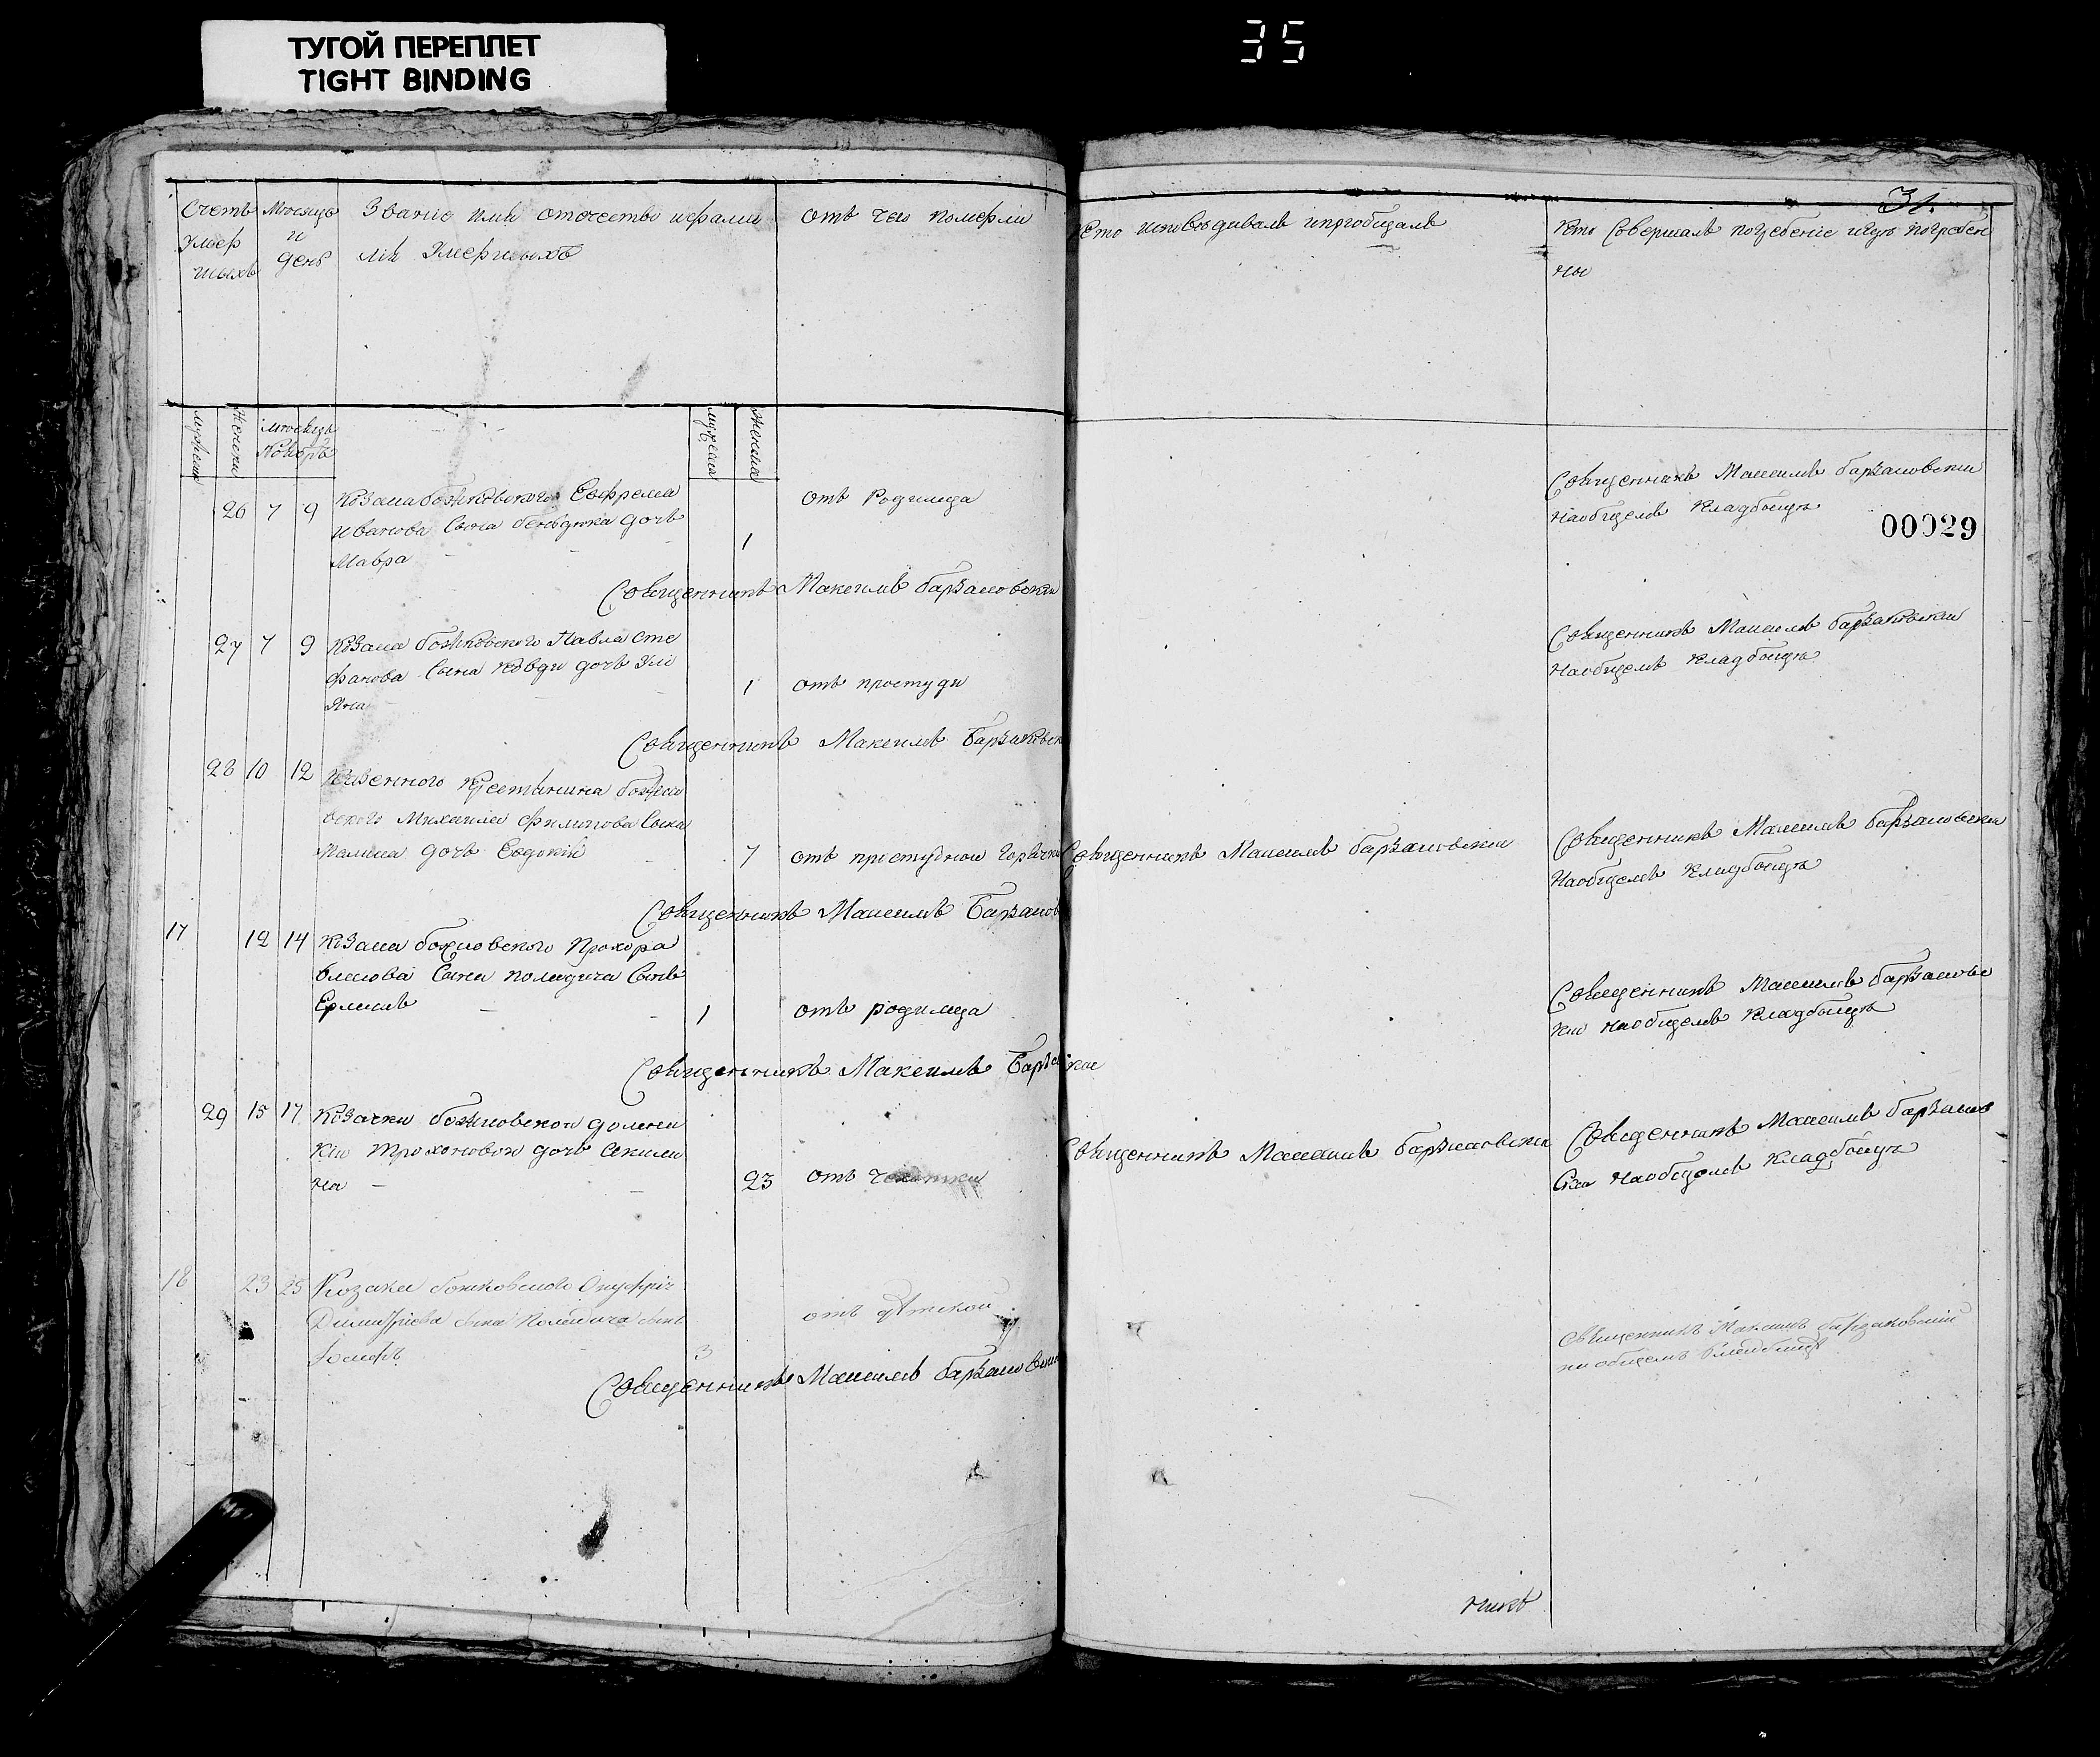 ТУГОЙ ПЕРЕПЛЕТ
TIGHT BINDING
35
31.
Счетъ
Умер
шыхъ
Мѣсяцъ
и
День
Званіе имя отечество ифами
лія Умершыхъ
отъ чего померли
Кто исповѣдивалъ ипріобщалъ
Кто Совершалъ погребеніе игдѣ погребен
ны
мужеска
Женска
мѣсяцъ
Ноябръ
мужеска
женска
26 7 9
Козака божковского Евфрема
Иванова Сына дочъ
Мавра
1
отъ Родимца
Священникъ Максимъ барзаковски
Наобщемъ Кладбищѣ
00029
Священникъ Максимъ барзаковски
27 7 9
Козака божковского Павла Сте
фанова Сына Ковди дочъ Улі
яна
1
отъ простуди
Священникъ Максимъ барзаковски
Наобщемъ Кладбищѣ
Священникъ Максимъ Барзаковск
28 10 12
Казенного Крестянина божко
вского Михаила Филипова Сына
дочъ Евдокія
7
отъ простудной Горячки
Священникъ Максимъ барзаковски
Священникъ Максимъ барзаковски
Наобщемъ Кладбищѣ
Священникъ Максимъ Барзаков
17 12 14
Козака божковского Прохора
Власова Сына поладича Сынъ
Ермилъ
1
отъ родимца
Священникъ Максимъ барзаковс
кии наобщемъ Кладбищѣ
Священникъ Максимъ Барзаковски
29 15 17
Козачки божковской домни
кіи Трохоновой дочъ Акили
на
23
отъ чехотки
Священникъ Максимъ барзаковски
Священникъ Максимъ барзаков
ски Наобщемъ Кладбищѣ
18 23 25
Козака божковского Онуфрія
Димитріева сына Поладича сынъ
Іосифъ
3
отъ дѣтской
Священникъ Максимъ барзаковскій
на общемъ Кладбищѣ
Священникъ Максимъ барзаковски
никъ